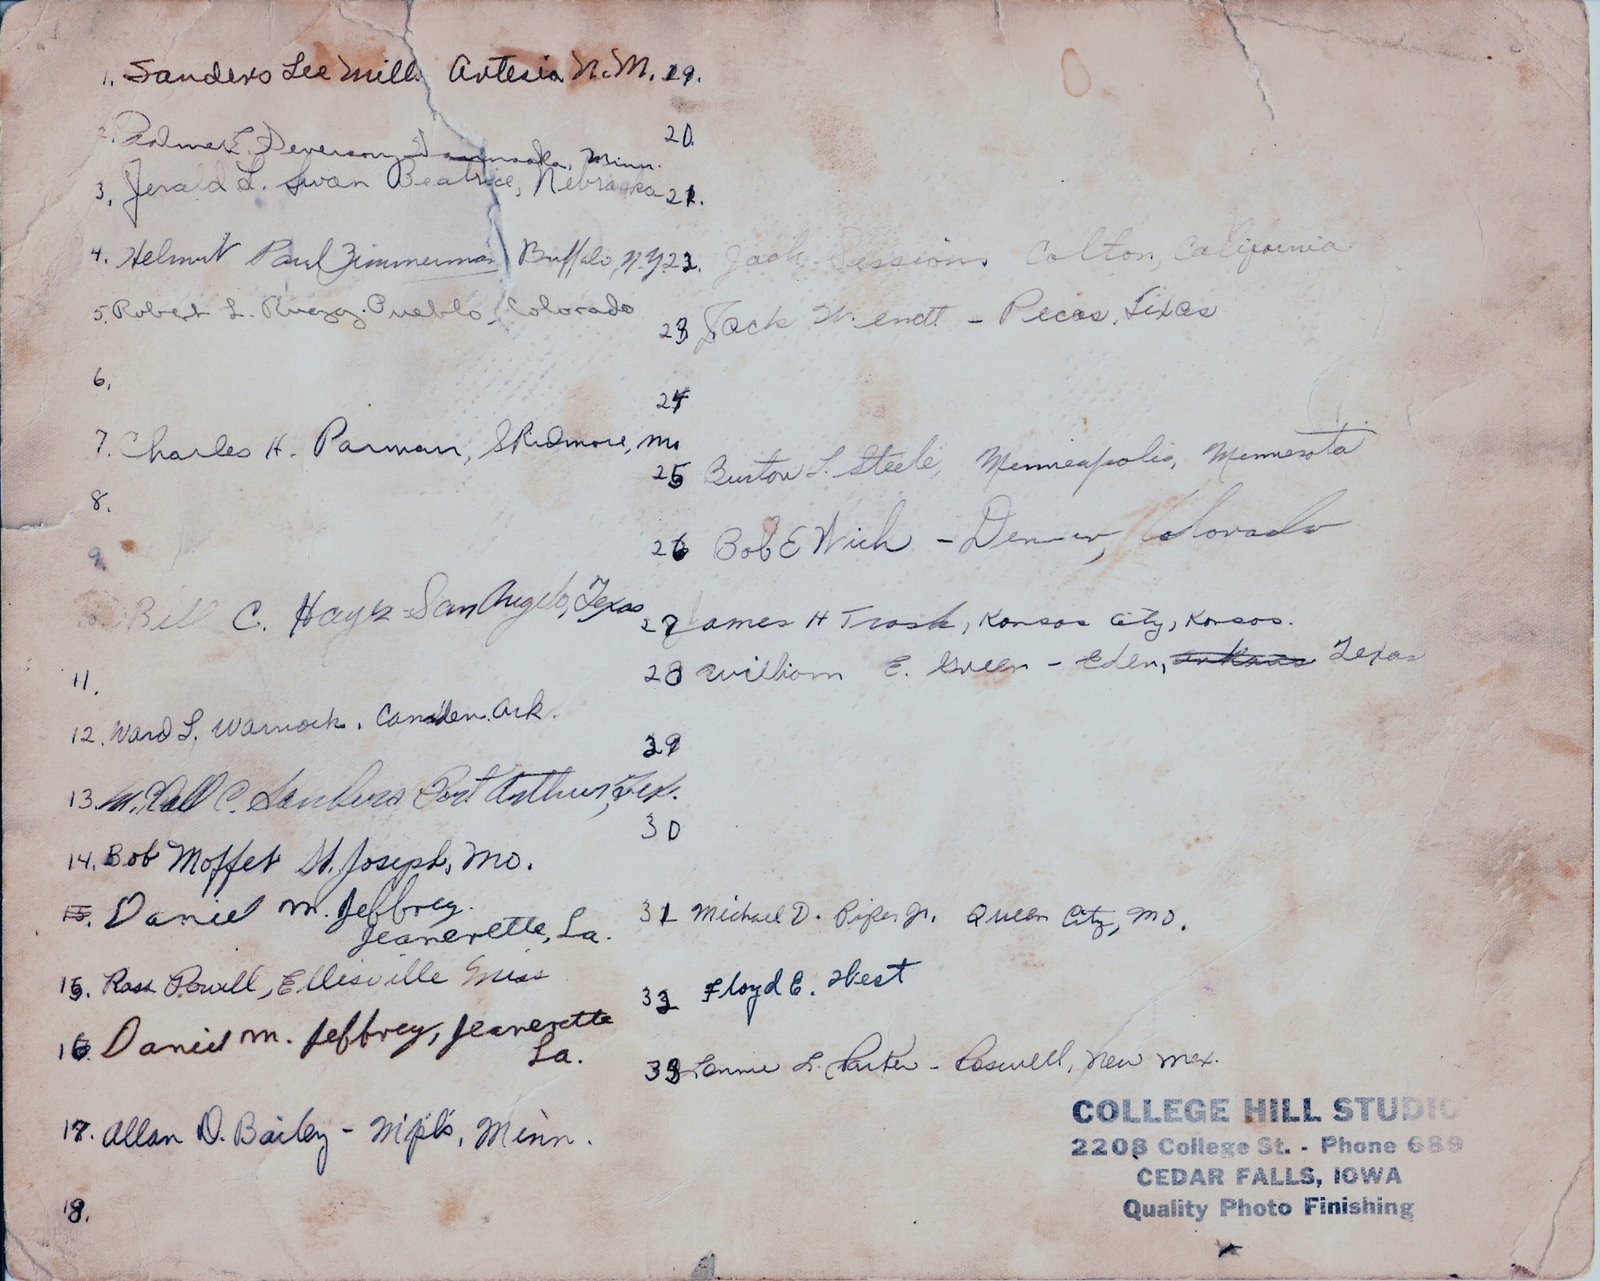 1. Sanders Lee Mills Artesia N.M.
2. Palmer L. Severson Minn.
3. Jerald L. Swan Beatrice, Nebraska
4. Helmut Paul Zimmerman Buffalo, N.Y.
5. Robert L. Pueblo, Colorado
6.
7. Charles H. Parman, Skidmore, Mo
8.
9.
10. Bill C. Hays - San Angelo, Texas
11.
12. Ward L. Warnock. Camden. Ark.
13. C. Sanders Port Arthur, Tex.
14. Bob Moffet St. Joseph, Mo.
15. Daniel M. Jeffrey.
Jeanerette, La.
15. Ross Powell, Ellisville Miss
16. Daniel M. Jeffrey, Jeanerette
La.
17. Allan D. Bailey - Mpls, Minn.
18.
19.
20.
21.
22. Jack Sessions Colton, California
23 Jack Wendt - Pecos, Texas
24
25 Burton L. Steele, Minneapolis, Minnesota
26 Bob E Wich - Denver, Colorado
27 James H Trask, Kansas City, Kansas.
28 William E. Green - Eden, Arkans Texas
29
30
31 Michael D. Piper Jr. Queen City, Mo.
32 Floyd E. West
33 Lonnie L. Parker - Roswell, New Mex.
COLLEGE HILL STUDIO
2208 College St. - Phone 689
CEDAR FALLS, IOWA
Quality Photo Finishing